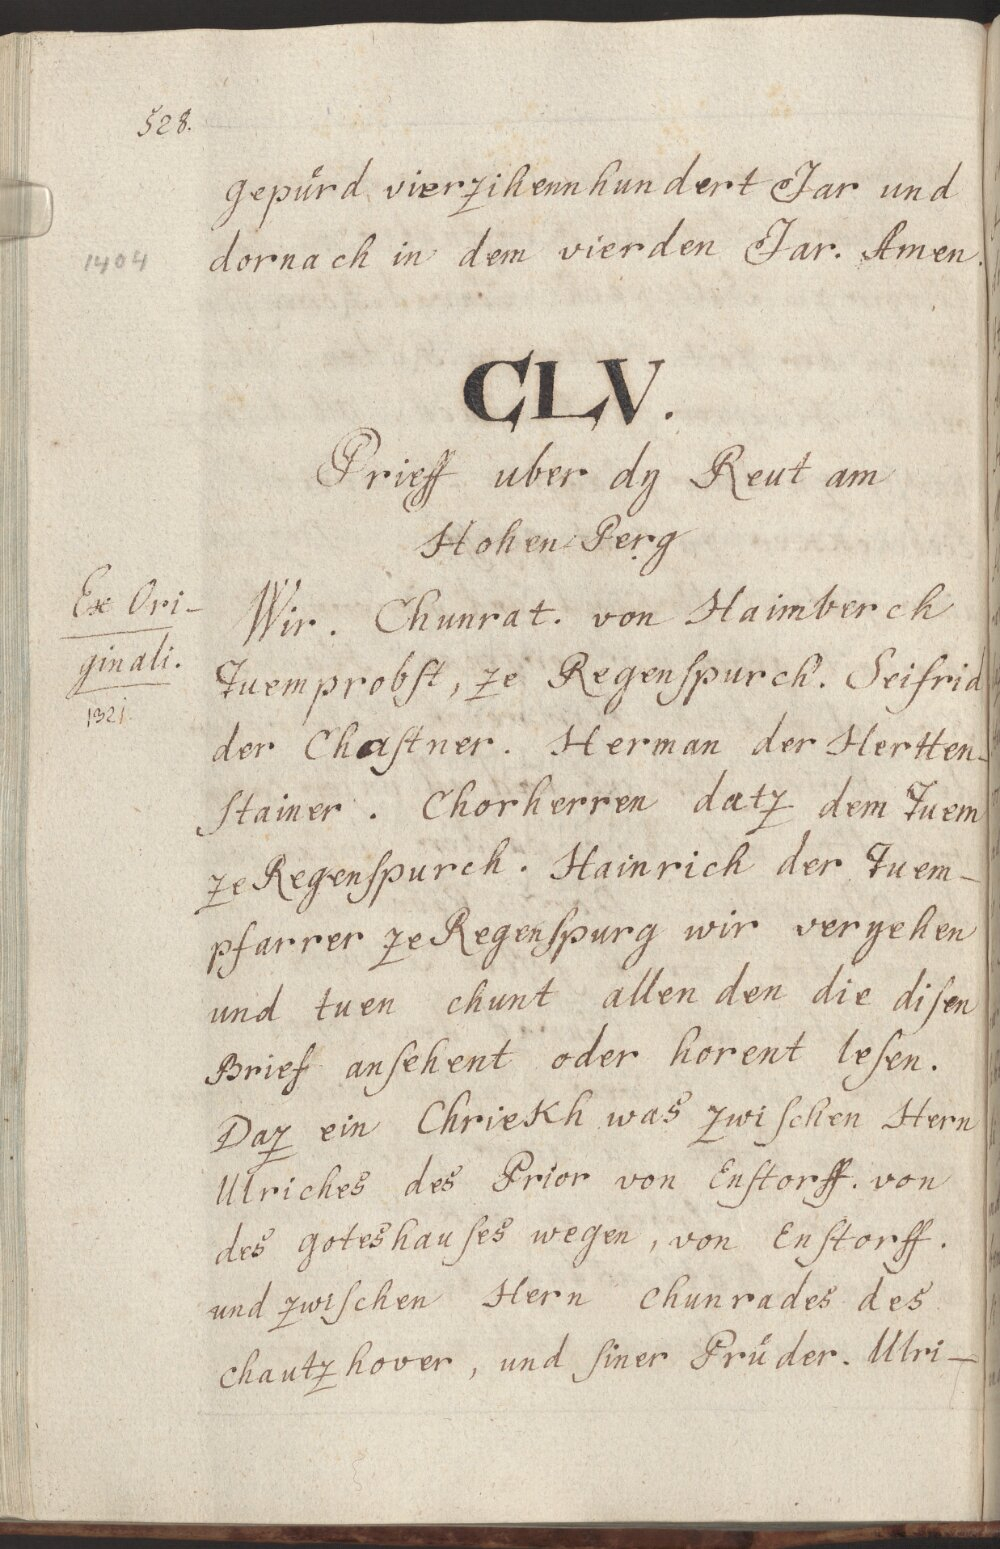 528.
gepürd vierzihennhundert Jar und
1404
dornach in dem vierden Jar. Amen.
CLV.
Prieff uber dy Reut am
Hohen Perg
Ex Ori-
ginali.
1321.
Wir. Chunrat. von Haimberch
Tuemprobſt, ze Regenſpurch. Seifrid
der Chaſtner. Herman der Hertten-
ſtainer. Chorherren datz dem Tuem
ze Regenſpurch. Hainrich der Tuem-
pfarrer ze Regenſpurg wir veryehen
und tuen chunt allen den die diſen
Brief anſehent oder horent leſen.
Daz ein Chriekh was zwiſchen Hern
Ulriches des Prior von Enſtorff. von
des goteshauſes wegen, von Enſtorff.
und zwiſchen Hern Chunrades des
Chautzhover, und ſiner Prüder. Ulri-